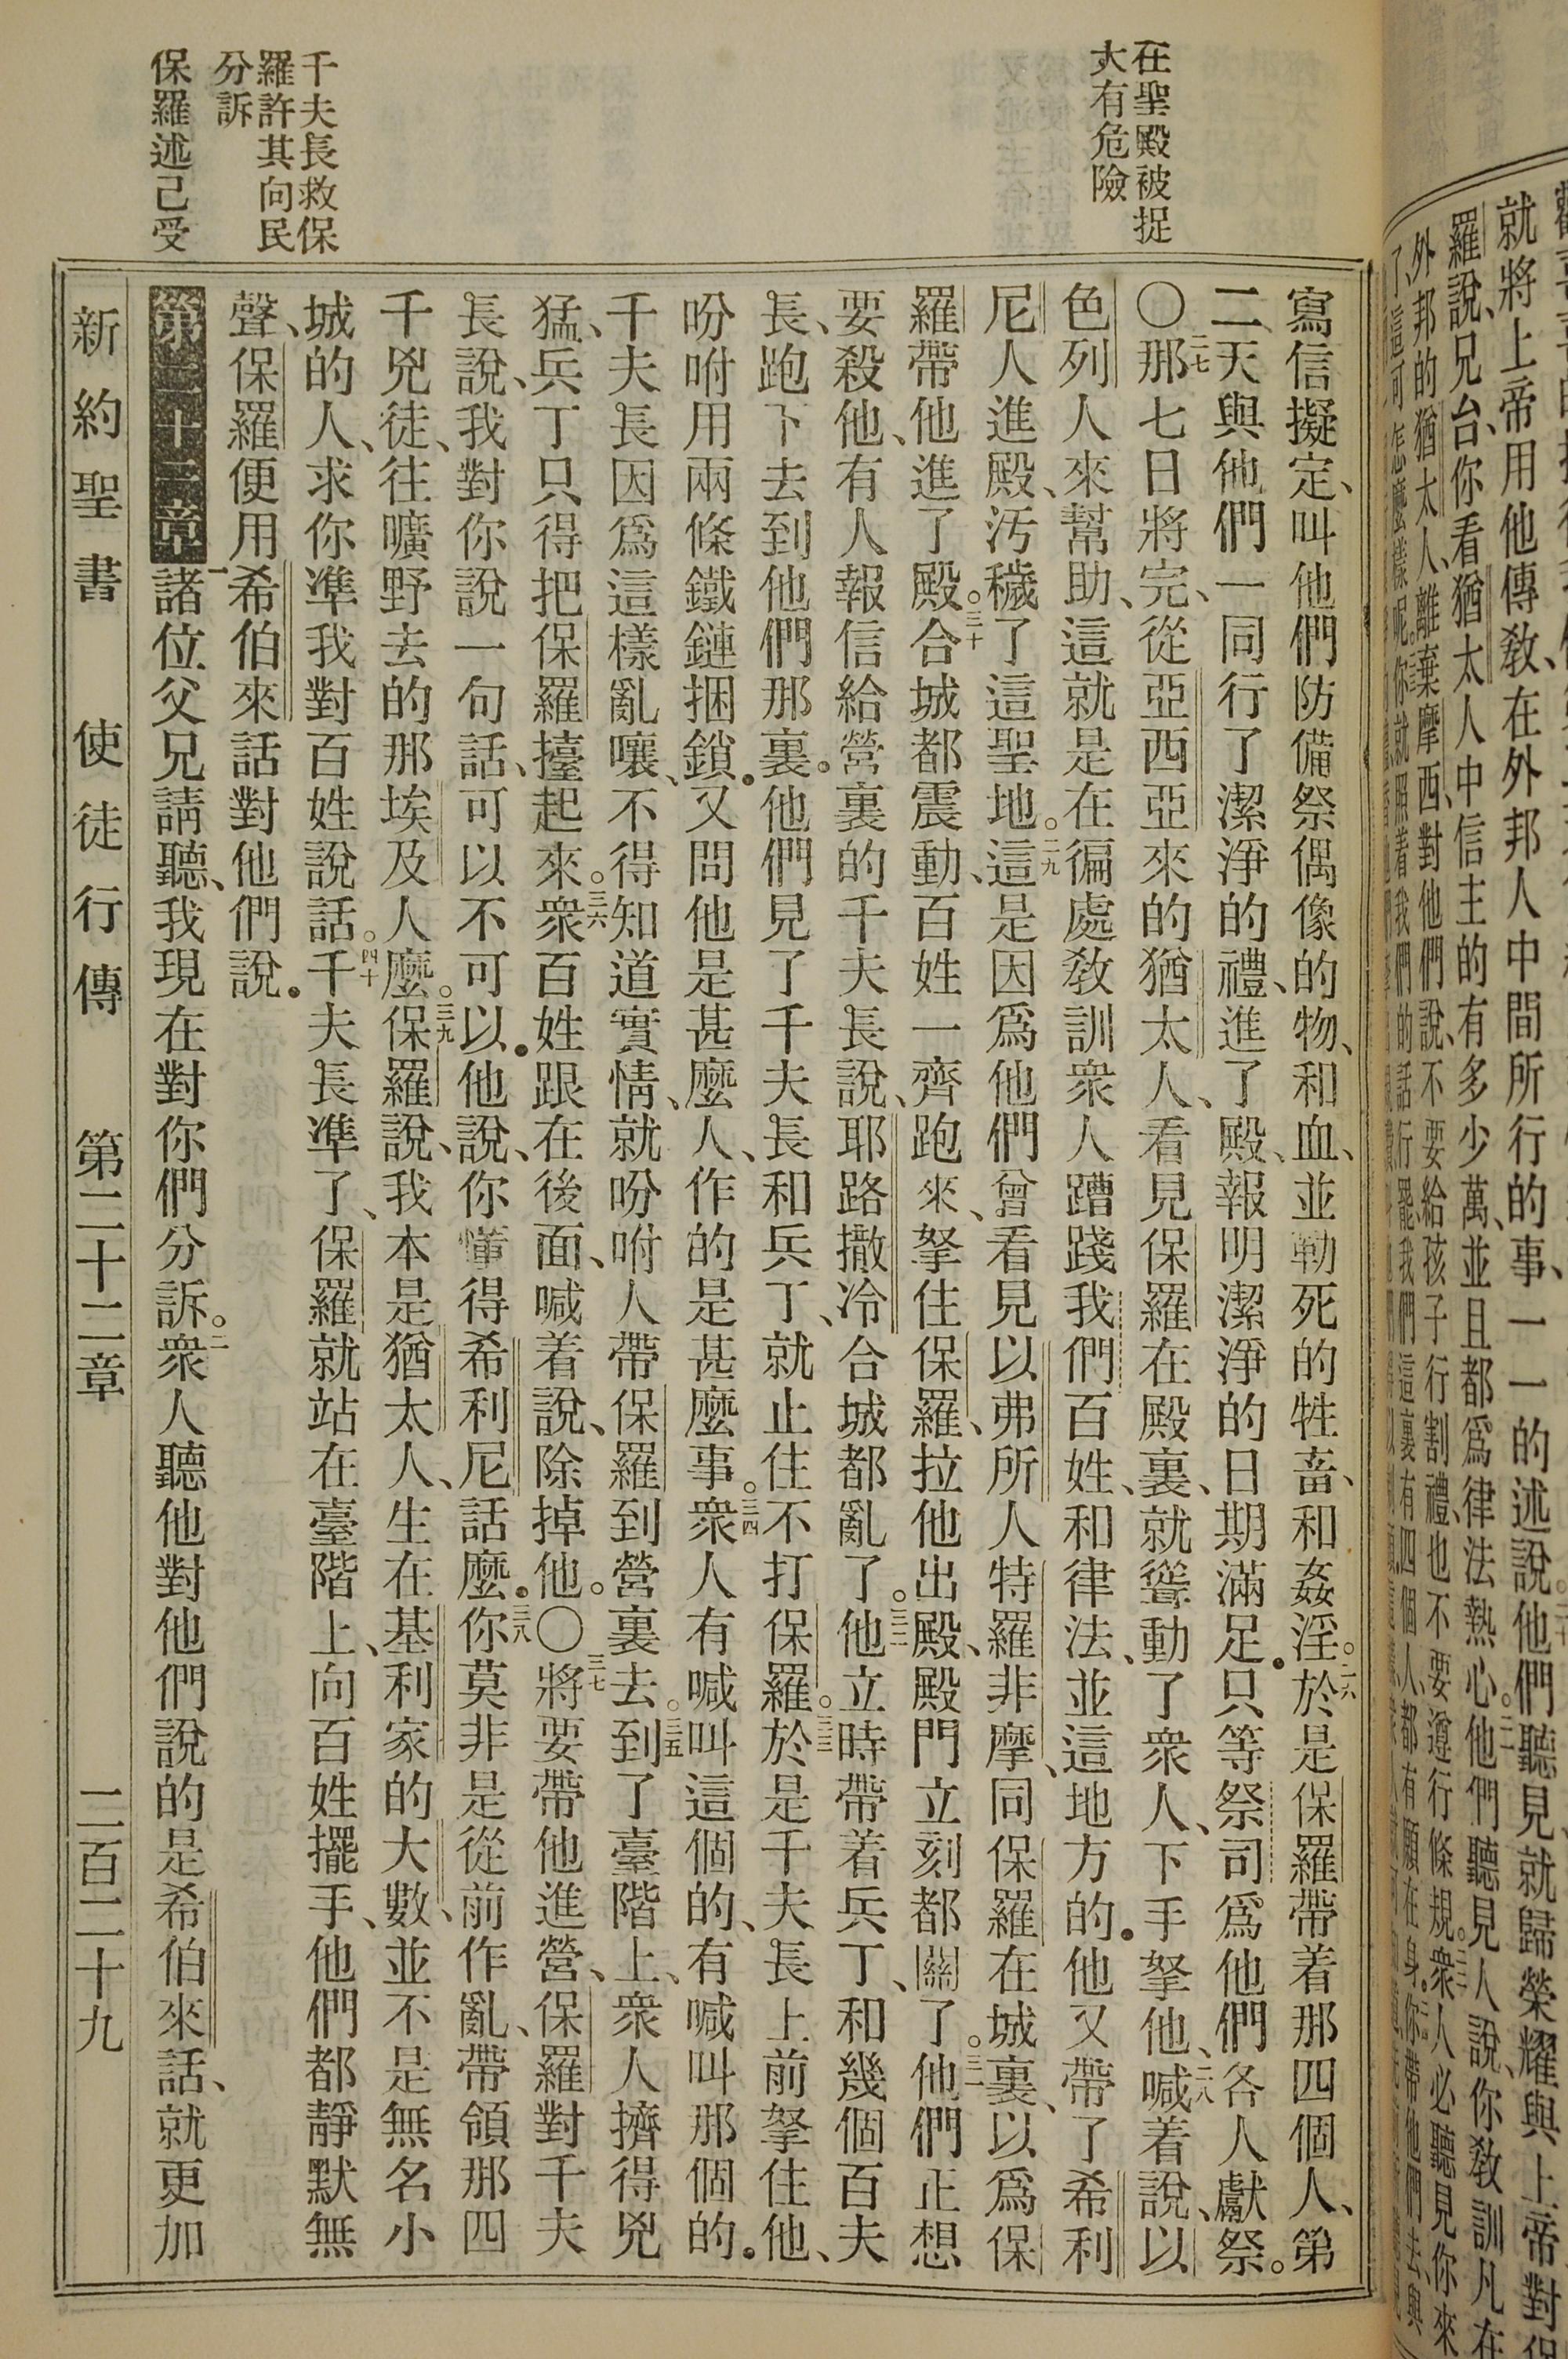 就將上帝用他傳教、在外邦人中間所行的事、一一的述說他們聽見、就歸榮耀與上帝對保
羅說、兄台、你看猶太人中信主的有多少萬、並且都爲律法熱心。他們聽見人說、你教訓凡在
外邦的猶太人、離棄摩西、對他們說、不要給孩子行割禮、也不要遵行條規。衆人必聽見你來
了、這可怎麼樣呢。你就照着我們的話行罷、我們這裏有四個人、都有願在身。你帶他們去、與
在聖殿被捉
大有危險
千夫長救保
羅許其向民
分訴
保羅述己受
寫信擬定、叫他們防備祭偶像的物、和血、並勒死的牲畜、和姦淫。二六於是保羅帶着那四個人、第
二天與他們一同行了潔淨的禮、進了殿、報明潔淨的日期滿足。只等祭司爲他們各人獻祭。
〇二七那七日將完、從亞西亞來的猶太人、看見保羅在殿裏、就聳動了衆人、下手拏他、二八喊着說、以
色列人來幫助、這就是在徧處教訓衆人蹧踐我們百姓、和律法、並這地方的。他又帶了希利
尼人進殿、污穢了這聖地。二九這是因爲他們曾看見以弗所人特羅非摩、同保羅在城裏、以爲保
羅帶他進了殿。三十合城都震動、百姓一齊跑來、拏住保羅、拉他出殿、殿門立刻都關了。三一他們正想
要殺他、有人報信給營裏的千夫長說、耶路撒冷合城都亂了。三二他立時帶着兵丁、和幾個百夫
長、跑下去到他們那裏。他們見了千夫長和兵丁、就止住不打保羅。三三於是千夫長上前拏住他、
吩咐用兩條鐵鏈捆鎖。又問他是甚麼人、作的是甚麼事。三四衆人有喊叫這個的、有喊叫那個的。
千夫長因爲這樣亂嚷、不得知道實情、就吩咐人帶保羅到營裏去。三五到了臺階上、衆人擠得兇
猛、兵丁只得把保羅擡起來。三六衆百姓跟在後面、喊着說、除掉他。〇三七將要帶他進營、保羅對千夫
長說、我對你說一句話、可以不可以。他說、你懂得希利尼話麼。三八你莫非是從前作亂、帶領那四
千兇徒、往曠野去的那埃及人麼。三九保羅說、我本是猶太人、生在基利家的大數、並不是無名小
城的人、求你準我對百姓說話。四十千夫長準了、保羅就站在臺階上、向百姓擺手、他們都靜默無
聲、保羅便用希伯來話對他們說。
第二十二章一諸位父兄請聽、我現在對你們分訴。二衆人聽他對他們說的是希伯來話、就更加
新約聖書 使徒行傳 第二十二章 二百二十九